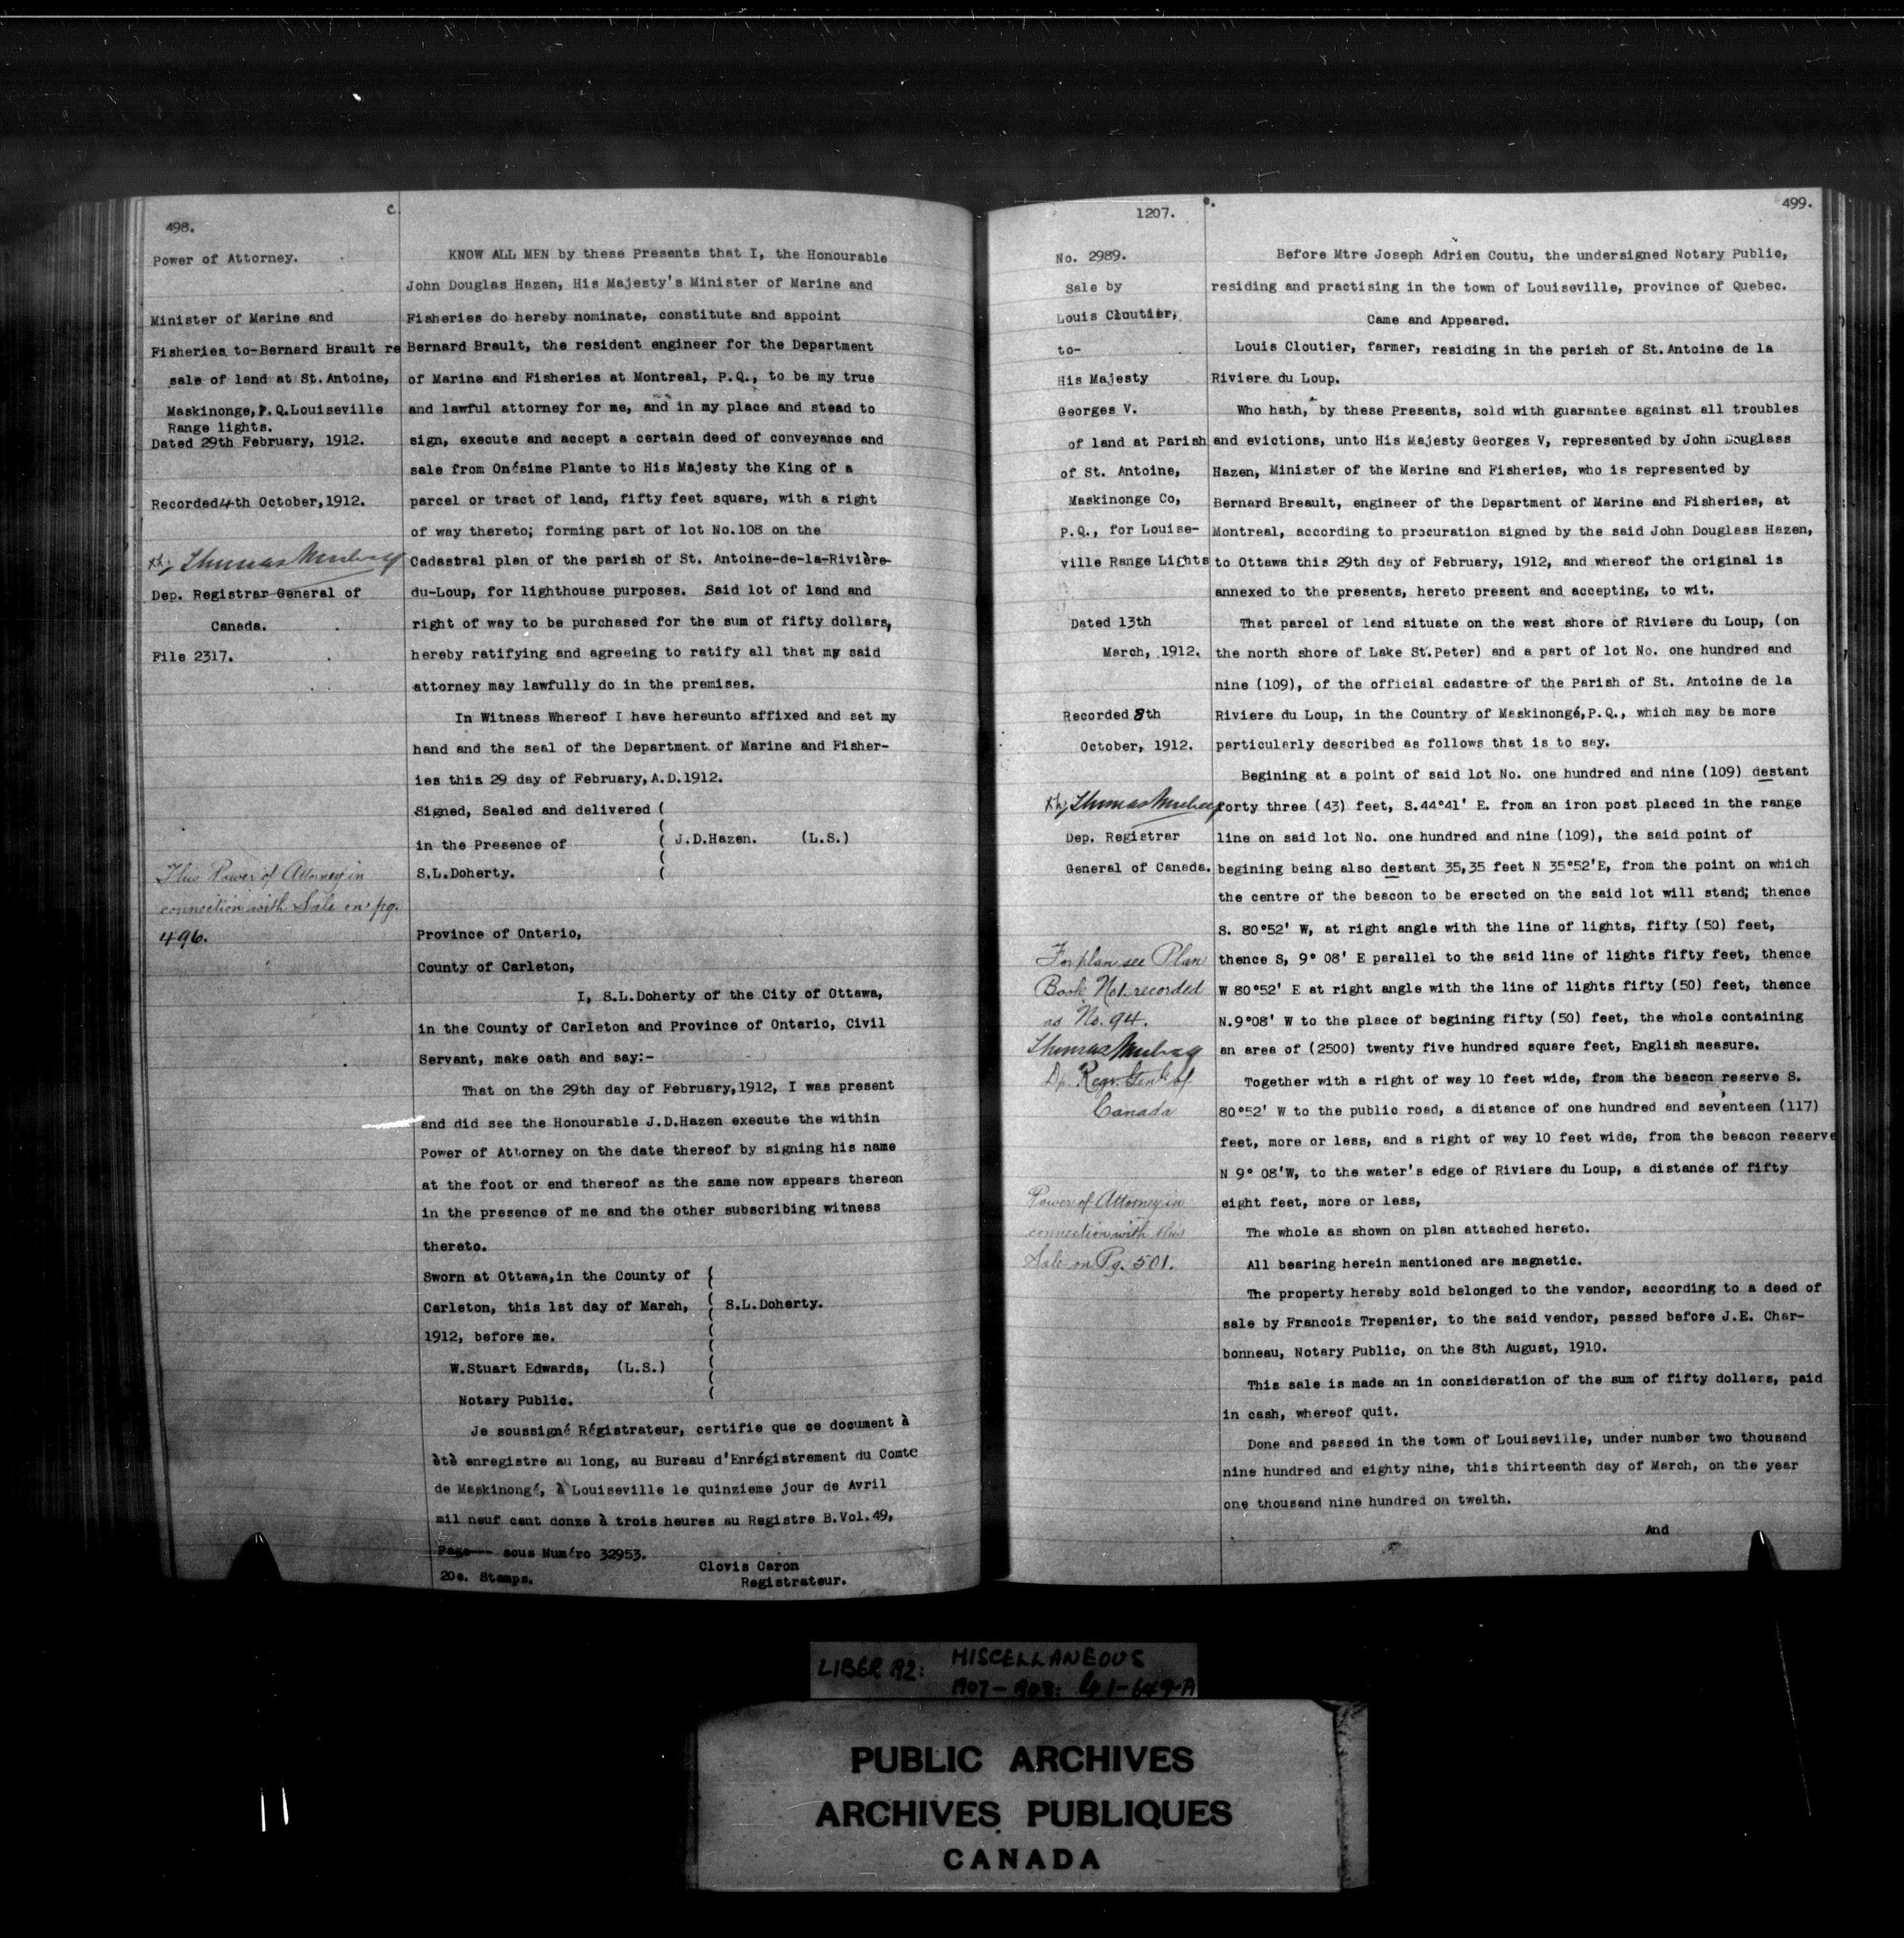 498.
c.
Power of Attorney.
Minister of Marine and
Fisheries to-Bernard Brault re
sale of land at St. Antoine,
Maskinonge, P.Q. Louiseville
Range lights.
Dated 29th February, 1912.
Recorded 4th October, 1912.
Thomas Mulvey
Dep. Registrar General of
Canada.
File 2317.
This Power of Attorney in
connection with Sale on pg.
496.
KNOW ALL MEN by these Presents that I, the Honourable
John Douglas Hazen, His Majesty's Minister of Marine and
Fisheries do hereby nominate, constitute and appoint
Bernard Brault, the resident engineer for the Department
of Marine and Fisheries at Montreal, P.Q., to be my true
and lawful attorney for me, and in my place and stead to
sign, execute and accept a certain deed of conveyance and
sale from Onésime Plante to His Majesty the King of a
parcel or tract of land, fifty feet square, with a right
of way thereto; forming part of lot No.108 on the
Cadastral plan of the parish of St. Antoine-de-la-Rivière-
du-Loup, for lighthouse purposes. Said lot of land and
right of way to be purchased for the sum of fifty dollars,
hereby ratifying and agreeing to ratify all that my said
attorney may lawfully do in the premises.
In Witness Whereof I have hereunto affixed and set my
hand and the seal of the Department of Marine and Fisher-
ies this 29 day of February, A.D.1912.
Signed, Sealed and delivered (
in the Presence of ( J.D.Hazen. (L.S.)
S.L.Doherty. (
Province of Ontario,
County of Carleton,
I, S.L.Doherty of the City of Ottawa,
in the County of Carleton and Province of Ontario, Civil
Servant, make oath and say:-
That on the 29th day of February,1912, I was present
and did see the Honourable J.D.Hazen execute the within
Power of Attorney on the date thereof by signing his name
at the foot or end thereof as the same now appears thereon
in the presence of me and the other subscribing witness
thereto.
Sworn at Ottawa,in the County of (
Carleton, this 1st day of March, ( S.L.Doherty.
1912, before me. (
W.Stuart Edwards, (L.S.) (
Notary Public. (
Je soussigné Régistrateur, certifie que ce document à
ètè enregistre au long, au Bureau d'Enrégistrement du Comte
de Maskinongé, à Louiseville le quinzieme jour de Avril
mil neuf cent donze à trois heures au Registre B.Vol.49,
Page--- sous Numéro 32953.
20c. Stamps.
Clovis Caron
Registrateur.
1207.
499.
No. 2989.
Sale by
Louis Cloutier,
to-
His Majesty
Georges V.
of land at Parish
of St. Antoine,
Maskinonge Co,
P.Q., for Louise-
ville Range Lights
Dated 13th
March, 1912.
Recorded 8th
October, 1912.
Thomas Mulvey
Dep. Registrar
General of Canada.
For plan see Plan
Book No1. recorded
as No. 94.
Thomas Mulvey
Dp. Regr. Genl of
Canada
Power of Attorney in
connection with this
Sale on Pg. 501.
Before Mtre Joseph Adrien Coutu, the undersigned Notary Public,
residing and practising in the town of Louiseville, province of Quebec.
Came and Appeared.
Louis Cloutier, farmer, residing in the parish of St. Antoine de la
Riviere du Loup.
Who hath, by these Presents, sold with guarantee against all troubles
and evictions, unto His Majesty Georges V, represented by John Douglass
Hazen, Minister of the Marine and Fisheries, who is represented by
Bernard Breault, engineer of the Department of Marine and Fisheries, at
Montreal, according to procuration signed by the said John Douglass Hazen,
to Ottawa this 29th day of February, 1912, and whereof the original is
annexed to the presents, hereto present and accepting, to wit.
That parcel of land situate on the west shore of Riviere du Loup, (on
the north shore of Lake St.Peter) and a part of lot No. one hundred and
nine (109), of the official cadastre of the Parish of St. Antoine de la
Riviere du Loup, in the Country of Maskinongé,P.Q., which may be more
particularly described as follows that is to say.
Begining at a point of said lot No. one hundred and nine (109) destant
forty three (43) feet, S.44°41' E. from an iron post placed in the range
line on said lot No. one hundred and nine (109), the said point of
begining being also destant 35,35 feet N 35°52'E, from the point on which
the centre of the beacon to be erected on the said lot will stand; thence
S. 80°52' W, at right angle with the line of lights, fifty (50) feet,
thence S, 9° 08' E parallel to the said line of lights fifty feet, thence
W 80°52' E at right angle with the line of lights fifty (50) feet, thence
N.9°08' W to the place of begining fifty (50) feet, the whole containing
an area of (2500) twenty five hundred square feet, English measure.
Together with a right of way 10 feet wide, from the beacon reserve S.
80°52' W to the public road, a distance of one hundred and seventeen (117)
feet, more or less, and a right of way 10 feet wide, from the beacon reserve
N 9° 08'W, to the water's edge of Riviere du Loup, a distance of fifty
eight feet, more or less,
The whole as shown on plan attached hereto.
All bearing herein mentioned are magnetic.
The property hereby sold belonged to the vendor, according to a deed of
sale by Francois Trepanier, to the said vendor, passed before J.E. Char-
bonneau, Notary Public, on the 8th August, 1910.
This sale is made an in consideration of the sum of fifty dollars, paid
in cash, whereof quit.
Done and passed in the town of Louiseville, under number two thousand
nine hundred and eighty nine, this thirteenth day of March, on the year
one thousand nine hundred on twelth.
And
LIBER 92: MISCELLANEOUS
PUBLIC ARCHIVES
ARCHIVES PUBLIQUES
CANADA